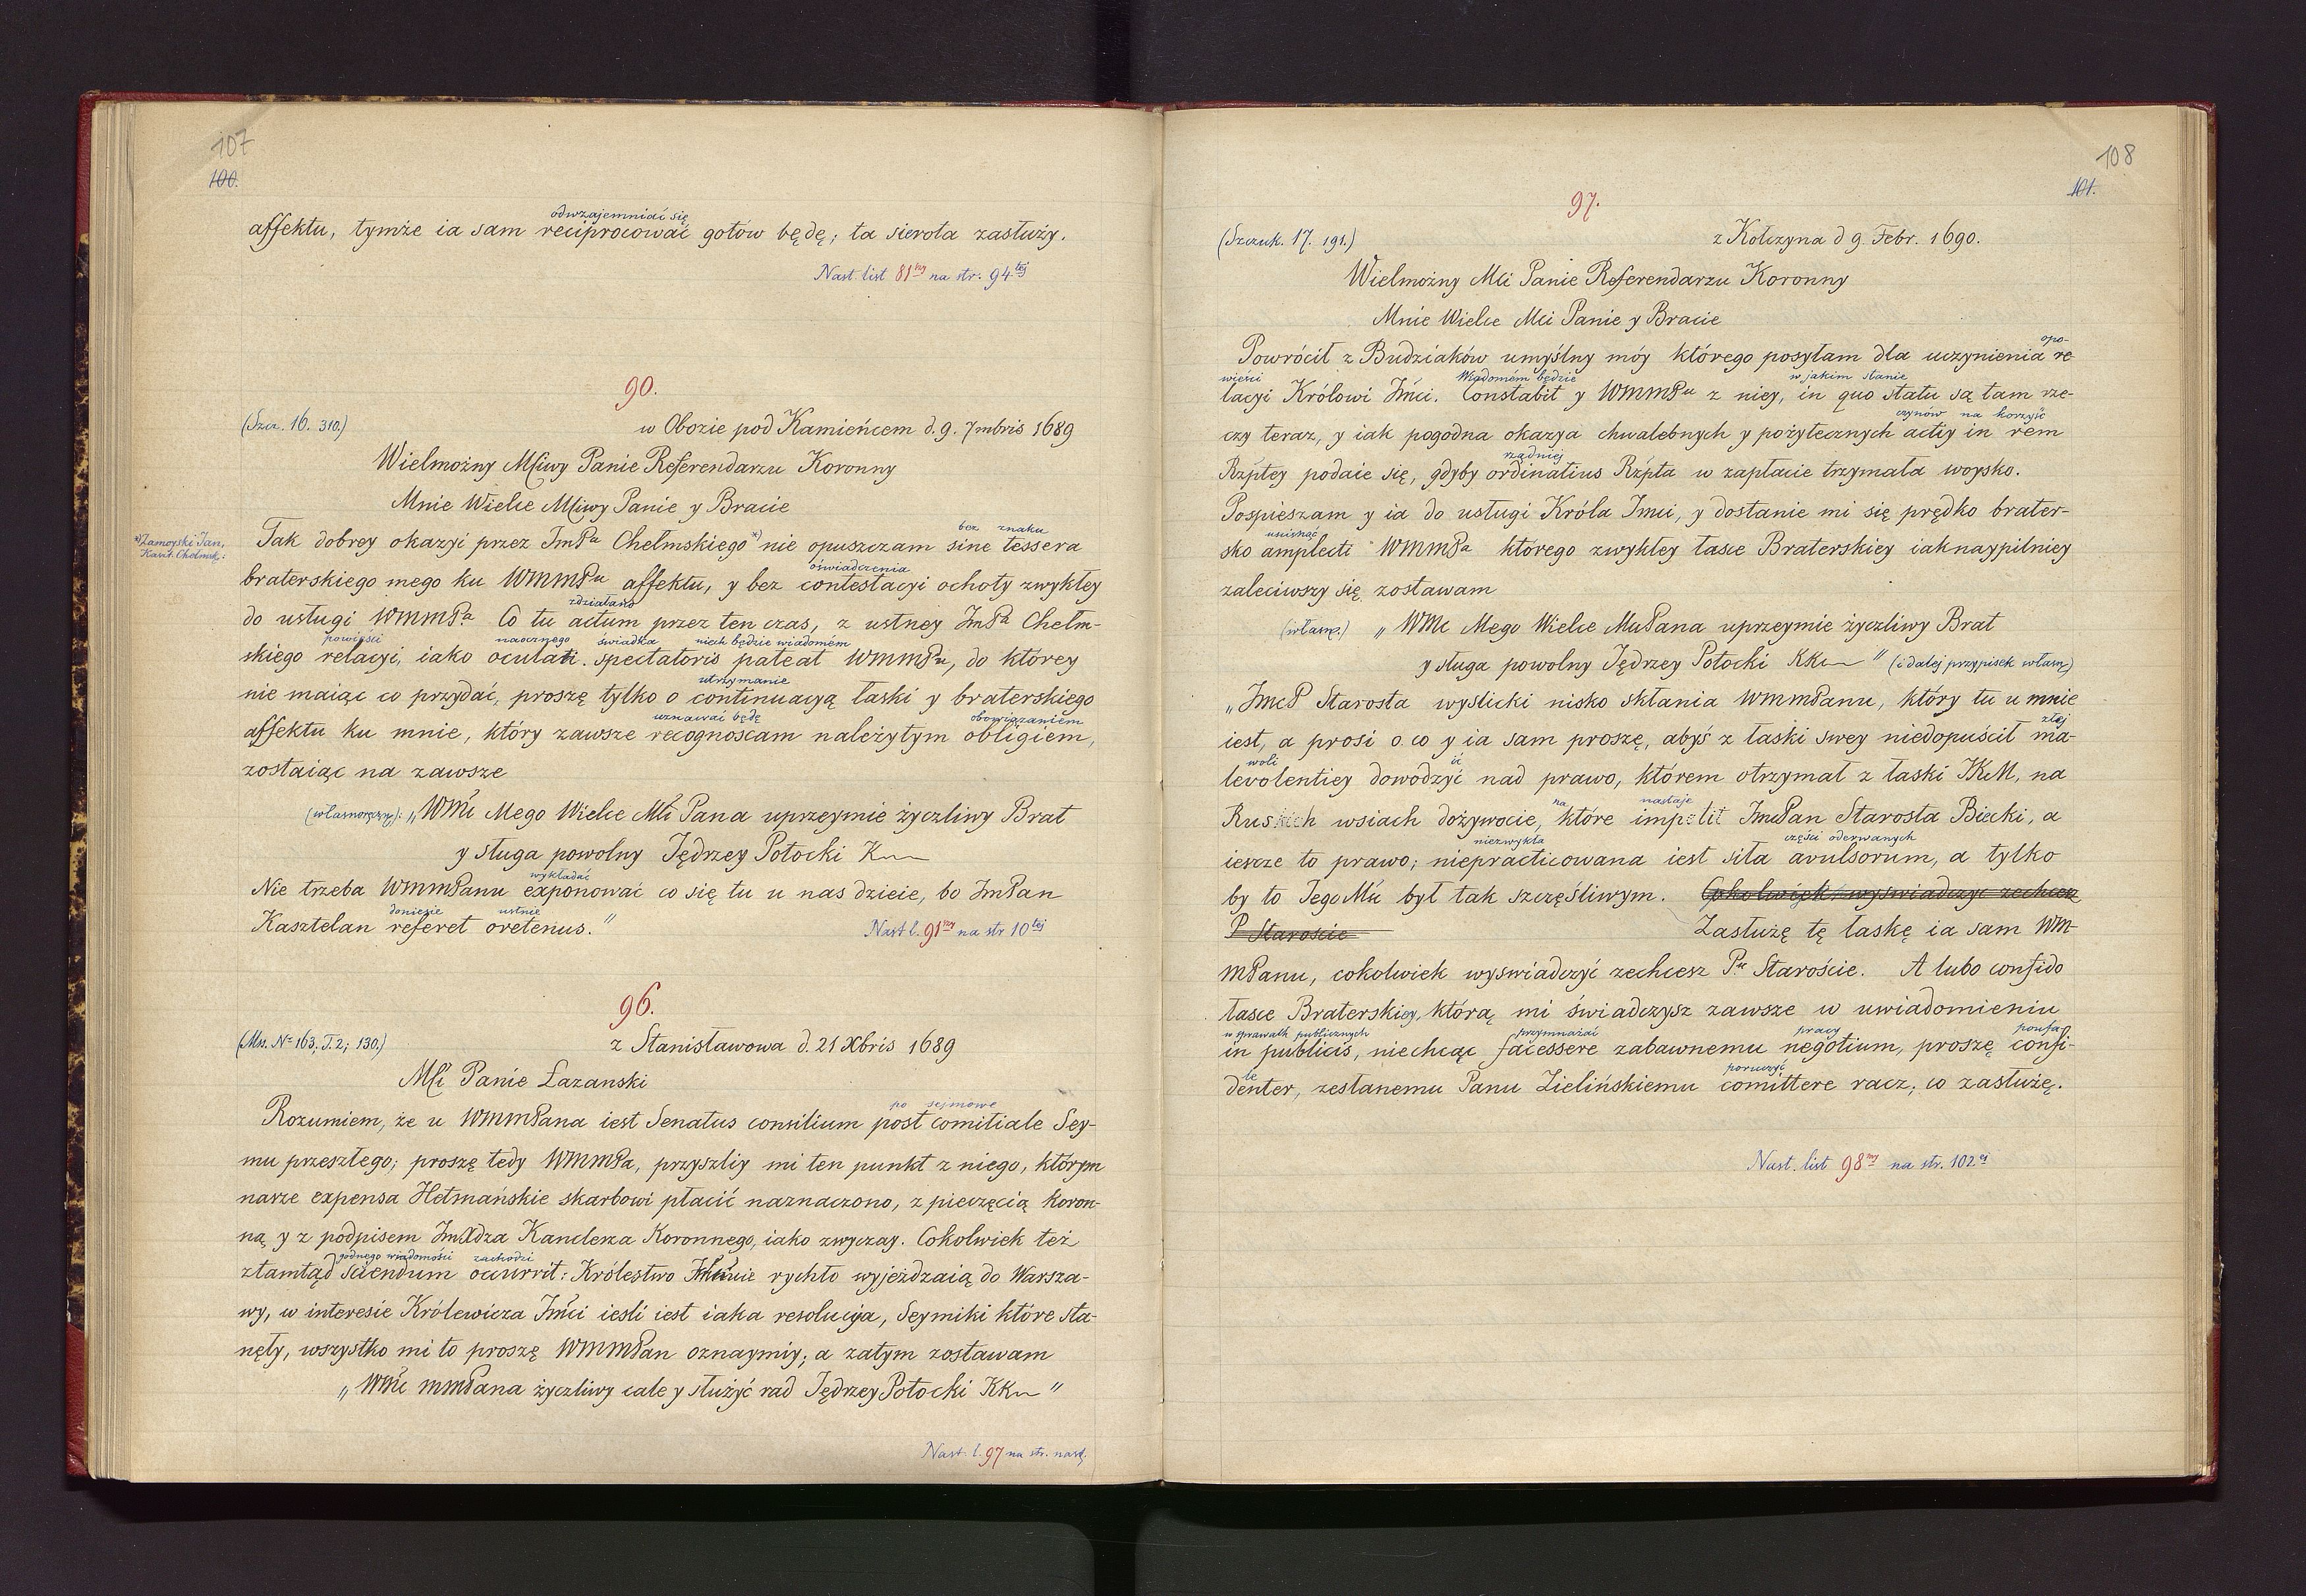 107
100.
odwzajemniać się
affektu, tymże ia sam reciprocować gotów będę; ta sierota zasłuży.
Nast list 81szy na str. 94tej
90.
(Szcz. 16. 310.)
w Obozie pod Kamieńcem d. 9. 7mbris 1689
Wielmożny Mściwy Panie Referendarzu Koronny
Mnie Wielce Mściwy Panie y Bracie
bez znaku
*) Zamoyski Jan,
Kaszt. Chełmsk:
Tak dobrey okazyi przez JmPa Chełmskiego *) nie opuszczam sine tessera
oświadczenia
braterskiego mego ku WMMPu affektu, y bez contestacyi ochoty zwykłey
zdziałano
do usługi WMMPa. Co tu actum przez ten czas, z ustney JmPa Chełm-
powieści naocznego świadka niech będzie wiadomém
skiego relacyi, iako oculati spectatoris pateat WMMPu, do którey
utrzymanie
nie maiąc co przydać, proszę tylko o continuacyą łaski y braterskiego
uznawać będę obowiązaniem
affektu ku mnie, który zawsze recognoscam należytym obligiem,
zostaiąc na zawsze
(własnoręczny): „WMć Mego Wielce Mći Pana uprzeymie życzliwy Brat
y sługa powolny Jędrzey Potocki K
wykładać
Nie trzeba WMMPanu exponować co się tu u nas dzieie, bo JmPan
doniesie ustnie
Kasztelan referet oretenus.”
Nast l. 91szy na str 10tej
96.
(Mss. No 163; T. 2; 130.)
z Stanisławowa d. 21 Xbris 1689
Mći Panie Łazanski
po sejmowe
Rozumiem, że u WMMPana iest Senatus consilium post comitiale Sey-
mu przeszłego; proszę tedy WMMPa, przyszliy mi ten punkt z niego, którym
nasze expensa Hetmańskie skarbowi płacić naznaczono, z pieczęcią koron-
ną y z podpisem JmXdza Kanclerza Koronnego, iako zwyczay. Cokolwiek też
godnego wiadomości zachodzi
ztamtąd sciendum occurrit: Królestwo Ichmć rychło wyjeżdzaią do Warsza-
wy, w interesie Królewicza Jmći iesli iest iaka resolucyja, Seymiki które sta-
nęły, wszystko mi to proszę WMMPan oznaymiy; a zatym zostawam
„WMć MMPana życzliwy cale y służyć rad Jędrzey Potocki KK ”
Nast. l. 97 na str. nast.
108
101.
97.
(Szczuk. 17. 191.)
z Kołczyna d 9. Febr. 1690.
Wielmożny Mci Panie Referendarzu Koronny
Mnie Wielce Mci Panie y Bracie
opo-
Powrócił z Budziaków umyślny móy którego posyłam dla uczynienia re-
wieści Wiadomém będzie w jakim stanie
lacyi Królowi Jmći. Constabit y WMMPu z niey, in quo statu są tam rze-
czynów na korzyść
czy teraz, y iak pogodna okazya chwalebnych y pożytecznych actiy in rem
rządniej
Rzptey podaie się, gdyby ordinatius Rzpta w zapłacie trzymała woysko.
Pospieszam y ia do usługi Króla Jmci, y dostanie mi się prędko brater-
uścisnąć
sko amplecti WMMPa którego zwykłey łasce Braterskiey iaknaypilniey
zaleciwszy się zostawam
(własn.) „WMc Mego Wielce MciPana uprzeymie życzliwy Brat
y sługa powolny Jędrzey Potocki KK ” (i dalej przypisek własn)
„JmcP Starosta wyślicki nisko skłania WMMPanu, który tu u mnie
złej
iest, a prosi o co y ia sam proszę, abyś z łaski swey niedopuścił ma-
woli ić
levolentiey dowodzyć nad prawo, którem otrzymał z łaski JKM, na
na nastaje
Ruskich wsiach dożywocie, które impetit JmcPan Starosta Biecki, a
niezwykła części oderwanych
ieszcze to prawo; niepracticowana iest siła avulsorum, a tylko
by to JegoMć był tak szczęśliwym. Cokolwiek wyświadczyć zechcesz
P Staroście Zasłużę tę łaskę ia sam WM-
MPanu, cokolwiek wyswiadczyć zechcesz Pu Staroście. A lubo confido
łasce Braterskiey, którą mi świadczysz zawsze w uwiadomieniu
w sprawach publicznych przymnażać pracy poufa-
in publicis, niechcąc facessere zabawnemu negotium, proszę confi-
le poruczyć
denter, zesłanemu Panu Zielińskiemu comittere racz; co zasłużę.
Nast. list 98my na str. 102ej